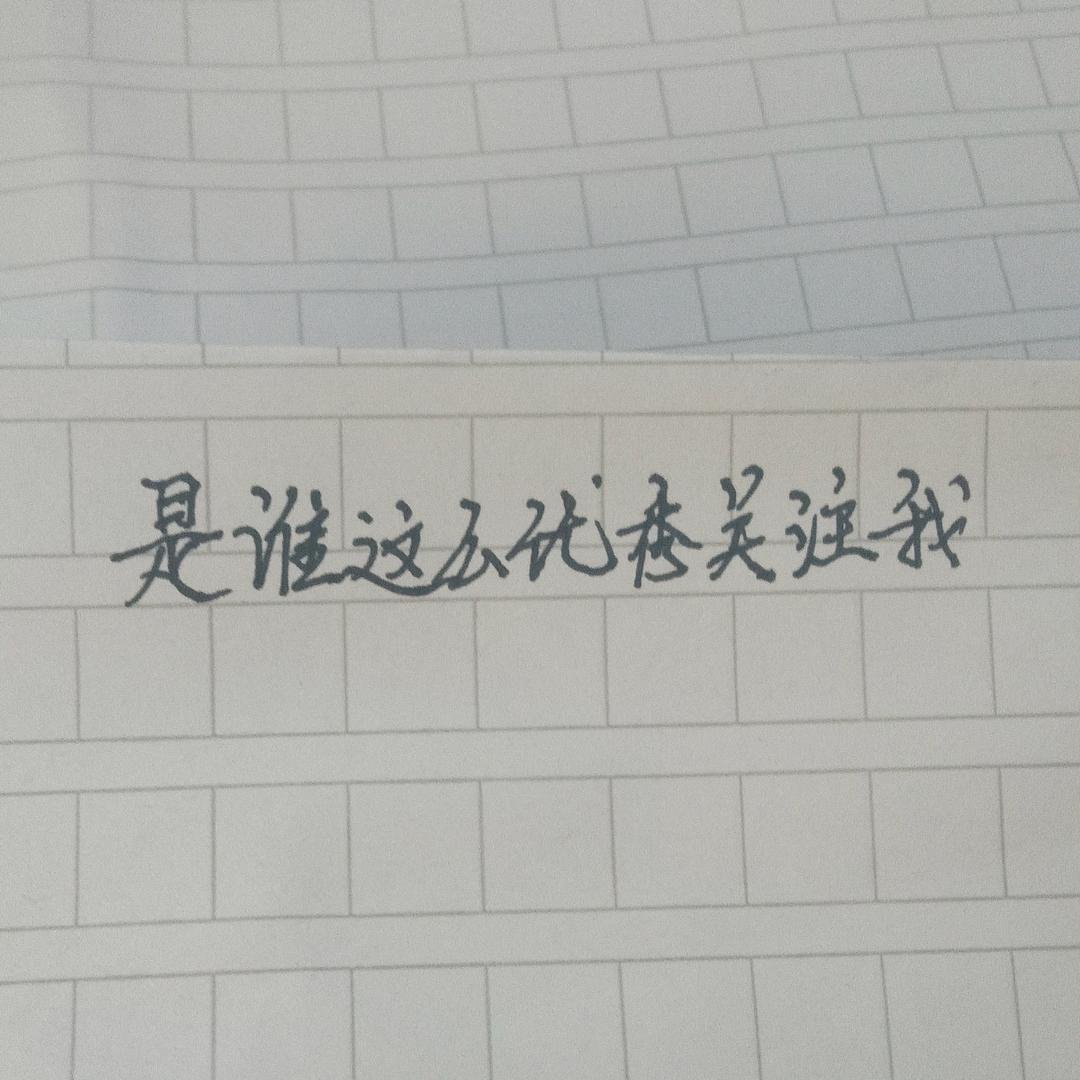 是谁这么优秀关注我